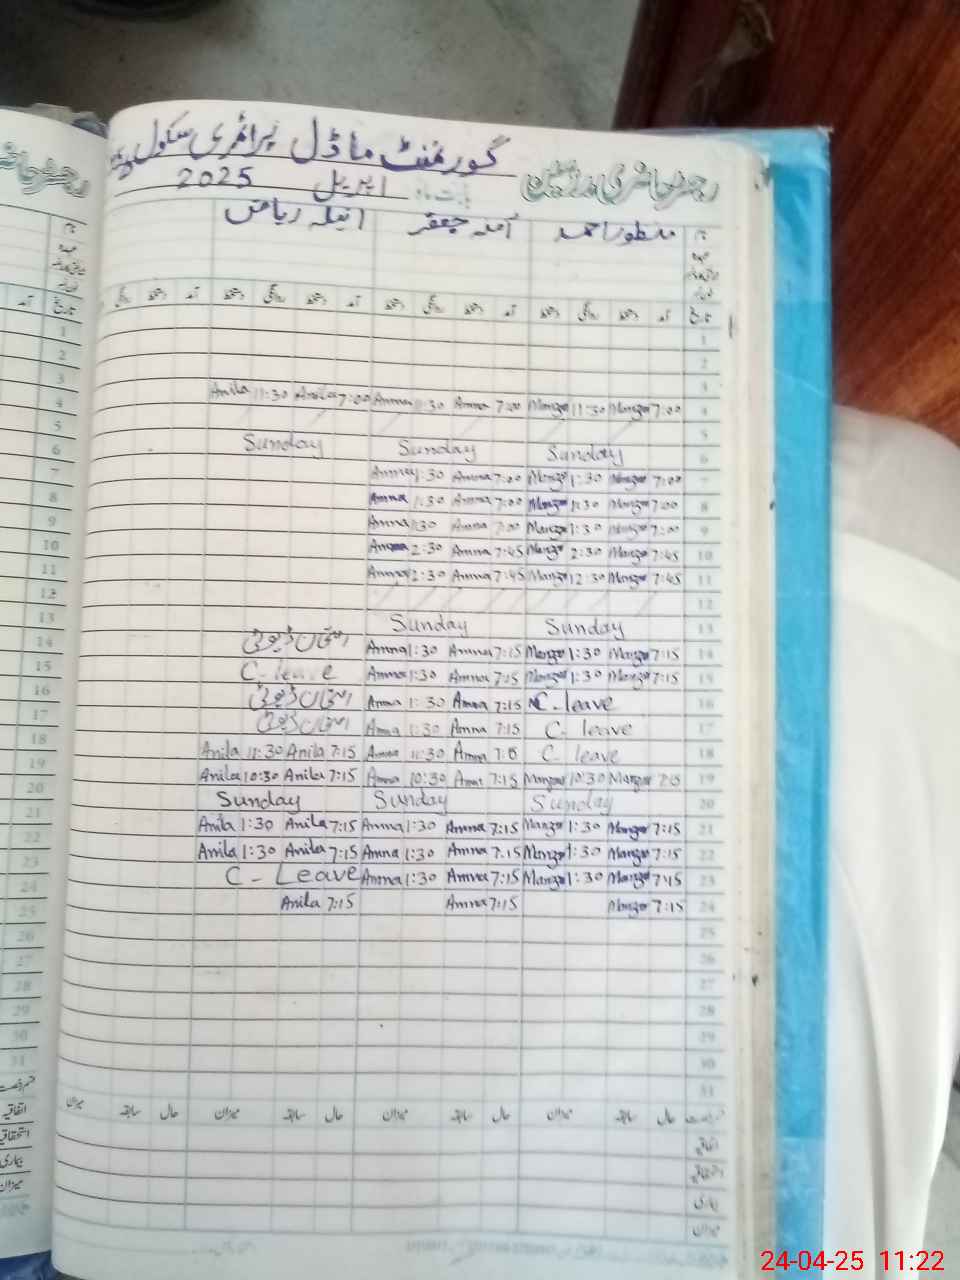 رجسٹر حاضری مدرسین گورنمنٹ ماڈل پرائمری سکول
بابت ماہ اپریل 2025
نام منظور احمد آمنہ جعفر انیلہ ریاض
عہدہ
تاریخ آمد دستخط روانگی دستخط آمد دستخط روانگی دستخط آمد دستخط روانگی دستخط آمد دستخط روانگی
1
2
3
Anila 11:30 Anila 7:00 Amna 11:30 Amna 7:00 Manzor 11:30 Manzor 7:00 4
5
Sunday Sunday Sunday 6
Amna 1:30 Amna 7:00 Manzor 1:30 Manzor 7:00 7
Amna 1:30 Amna 7:00 Manzor 1:30 Manzor 7:00 8
Amna 1:30 Amna 7:00 Manzor 1:30 Manzor 7:00 9
Amna 2:30 Amna 7:45 Manzor 2:30 Manzor 7:45 10
Amna 12:30 Amna 7:45 Manzor 12:30 Manzor 7:45 11
12
Sunday Sunday 13
امتحان ڈیوٹی Amna 1:30 Amna 7:15 Manzor 1:30 Manzor 7:15 14
C. leave Amna 1:30 Amna 7:15 Manzor 1:30 Manzor 7:15 15
امتحان ڈیوٹی Amna 1:30 Amna 7:15 C. leave 16
امتحان ڈیوٹی Amna 1:30 Amna 7:15 C. leave 17
Anila 11:30 Anila 7:15 Amna 11:30 Amna C. leave 18
Anila 10:30 Anila 7:15 Amna 10:30 Amna 7:15 Manzor 10:30 Manzor 19
Sunday Sunday Sunday 20
Anila 1:30 Anila 7:15 Amna 1:30 Amna 7:15 Manzor 1:30 Manzor 7:15 21
Anila 1:30 Anila 7:15 Amna 1:30 Amna 7:15 Manzor 1:30 Manzor 7:15 22
C - Leave Amna 1:30 Amna 7:15 Manzor 1:30 Manzor 7:15 23
Anila 7:15 Amna 7:15 Manzor 7:15 24
25
26
27
28
29
30
31
حال سابقہ میزان حال سابقہ میزان حال سابقہ میزان حال سابقہ میزان
اتفاقیہ
استحقاقیہ
بیماری
میزان
24-04-25 11:22